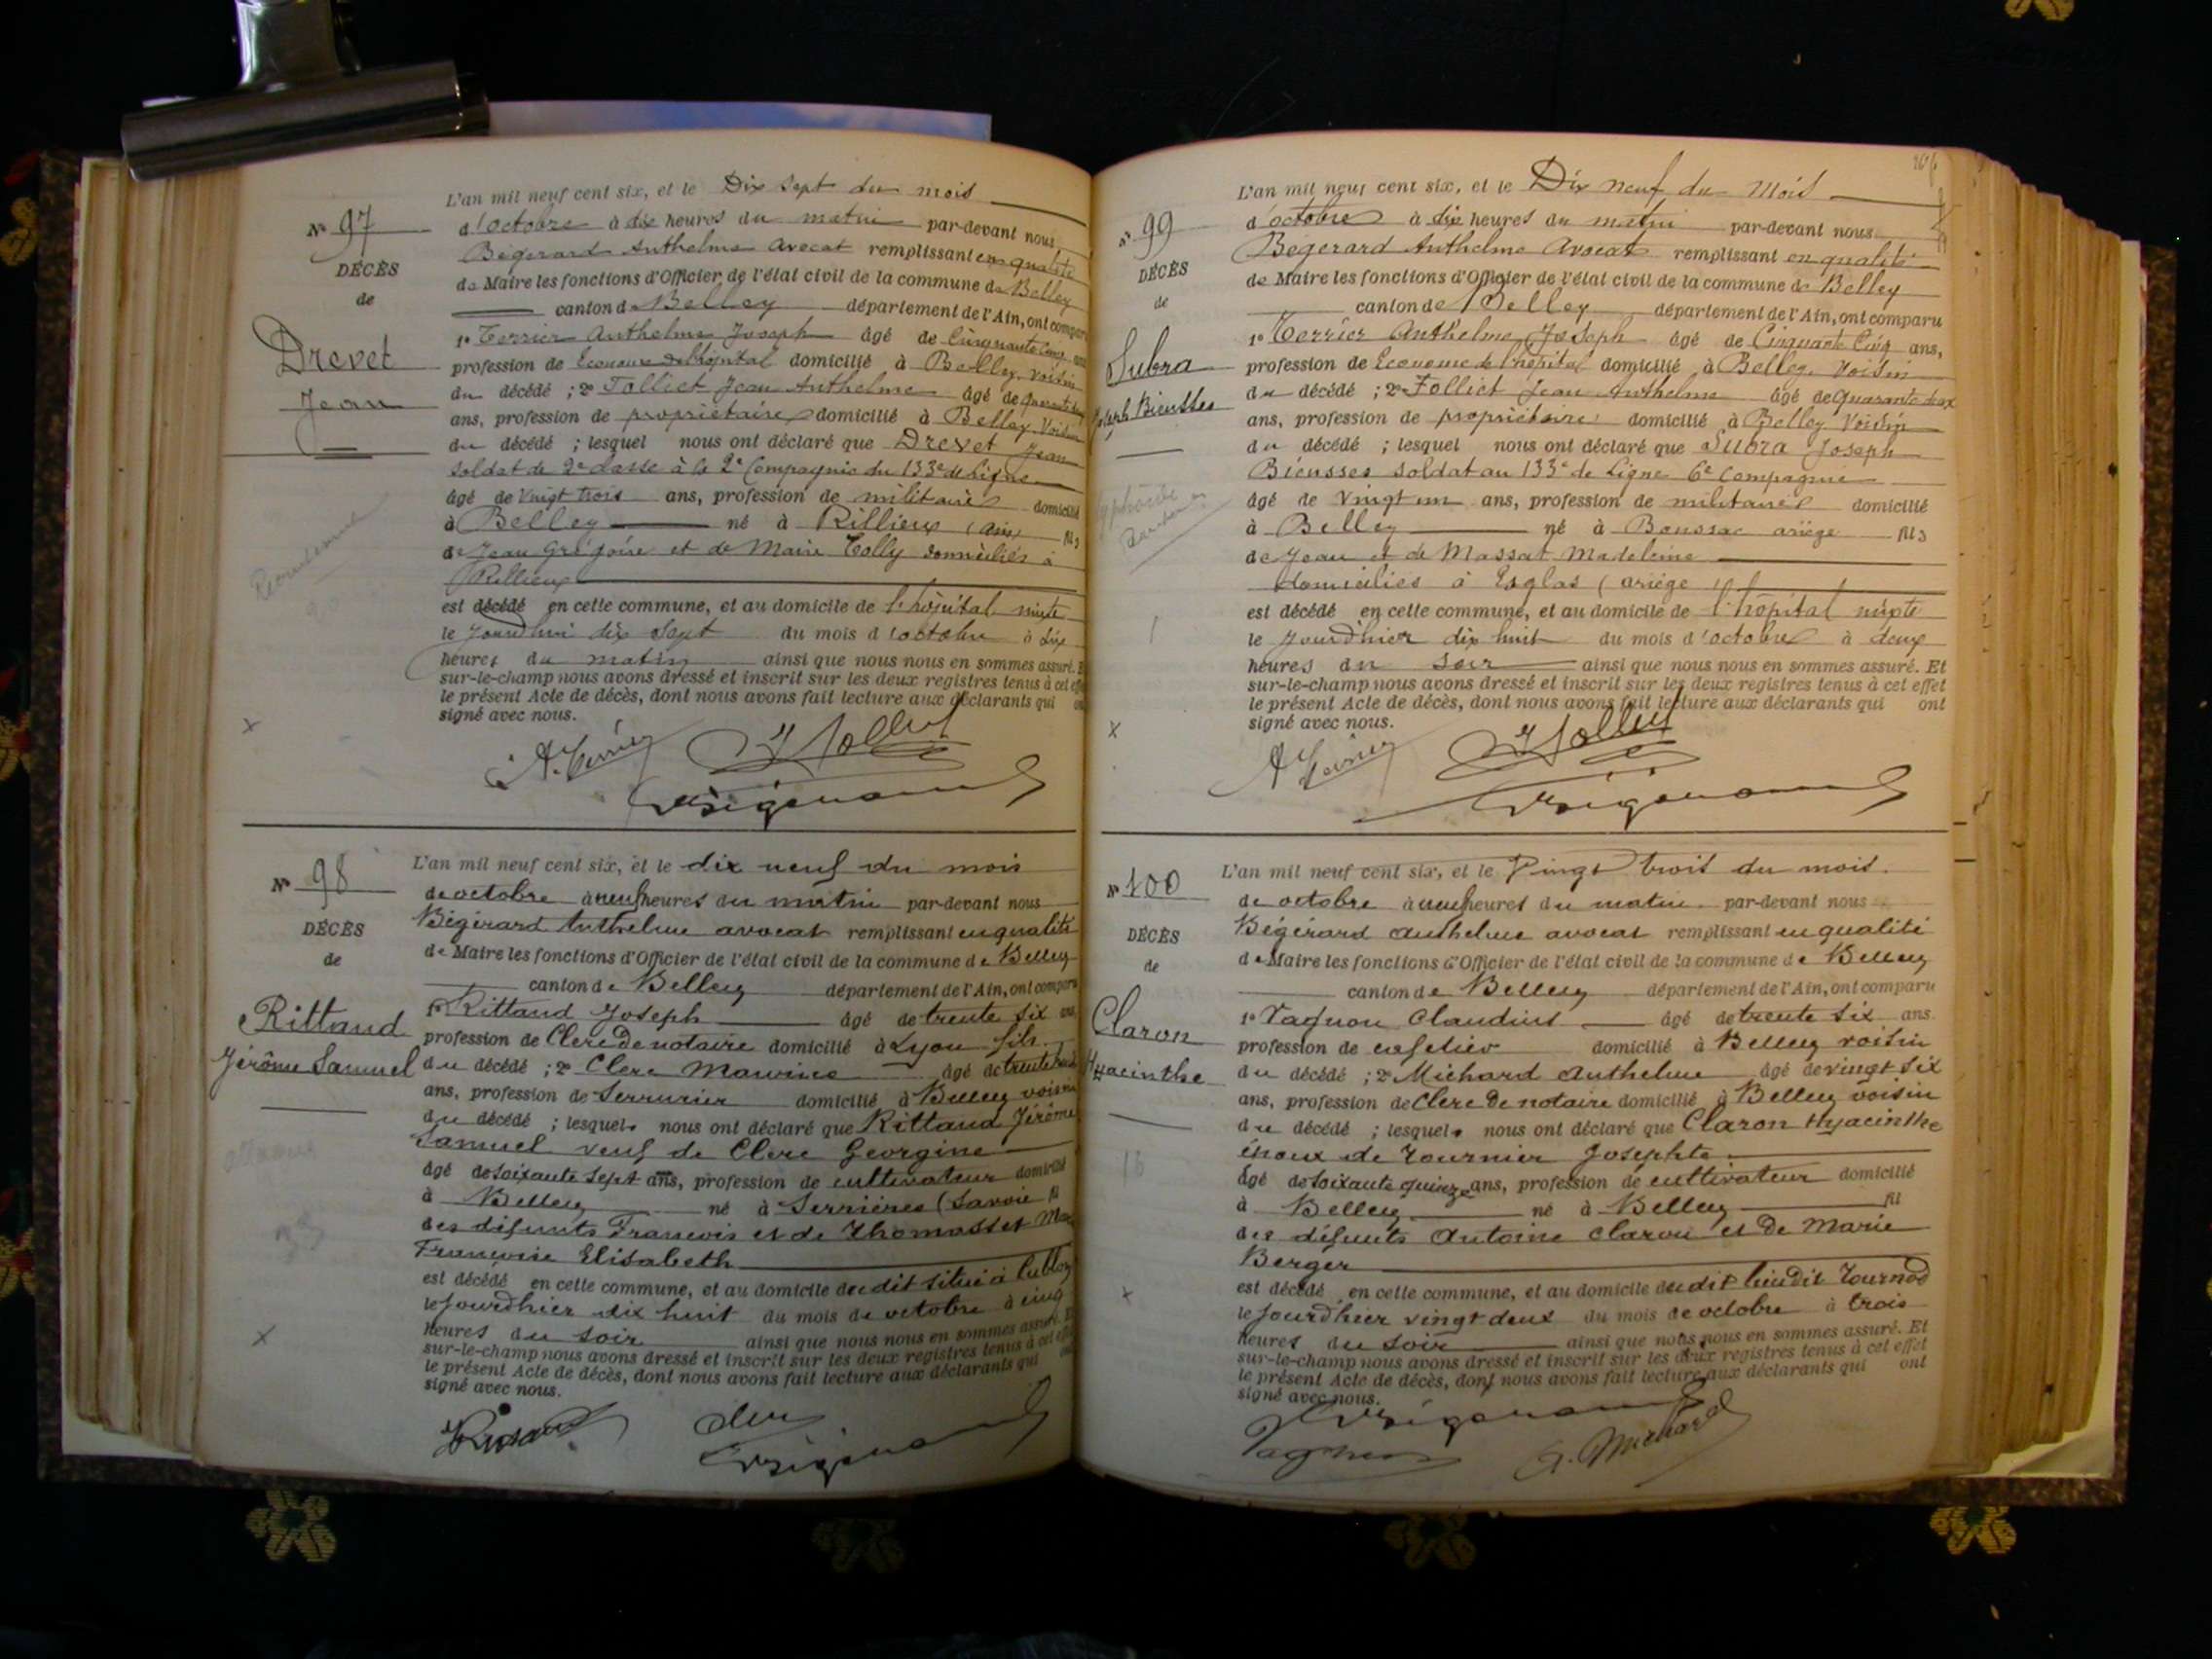 L'an mil neuf cent six, et le Dix sept du mois
N° 97
d'octobre à dix heures du matin par-devant nous
Bégérard Anthelme Avocat remplissant en qualité
DÉCÈS
de Maire les fonctions d'Officier de l'état civil de la commune de Belley
de
canton de Belley département de l'Ain, ont comparu
1° Terrier Anthelme Joseph âgé de Cinquante Cinq ans
Drevet
profession de Econome de l'hôpital domicilié à Belley voisin
du décédé ; 2° Folliet Jean Anthelme âgé de quarante deux
Jean
ans, profession de propriétaire domicilié à Belley Voisin
du décédé ; lesquel nous ont déclaré que Drevet Jean
Soldat de 2e classe à la 2e Compagnie du 133e de ligne
âgé de Vingt trois ans, profession de militaire domicilié
à Belley né à Rillieux (Ain) fils
de Jean Grégoire et de Marie Colly domiciliés à
Rillieux
est décédé en cette commune, et au domicile de l'hôpital mixte
le Jourdhui dix Sept du mois d'octobre à dix
heures du matin ainsi que nous nous en sommes assuré. E
sur-le-champ nous avons dressé et inscrit sur les deux registres tenus à cet effe
le présent Acte de décès, dont nous avons fait lecture aux déclarants qui on
signé avec nous.
x
A. Terrier J Folliet
Bégérard
L'an mil neuf cent six, et le dix neuf du mois
N° 98
de octobre à neuf heures du matin par-devant nous
Bégérard Anthelme avocat remplissant en qualité
DÉCÈS
de Maire les fonctions d'Officier de l'état civil de la commune de Belley
de
canton de Belley département de l'Ain, ont comparu
1° Rittaud Joseph âgé de trente six ans
Rittaud
profession de Clerc de notaire domicilié à Lyon fils
Jérôme Samuel
du décédé ; 2° Clerc Maurice âgé de trente
ans, profession de Serrurier domicilié à Belley voisin
du décédé ; lesquels nous ont déclaré que Rittaud Jérôme
Samuel veuf de Clerc Georgine
âgé de soixante sept ans, profession de cultivateur domicilié
à Belley né à Serrières (Savoie fil
des défunts Francois et de Thomasset
Francoise Elisabeth
35
est décédé en cette commune, et au domicile du dit situé à
le Jourdhier dix huit du mois de octobre à cinq
heures du soir ainsi que nous nous en sommes assuré. E
x
sur-le-champ nous avons dressé et inscrit sur les deux registres tenus à cet effe
le présent Acte de décès, dont nous avons fait lecture aux déclarants qui on
signé avec nous.
Rittaud Clerc
Bégérard
L'an mil neuf cent six, et le Dix neuf du Mois
N° 99
d'octobre à dix heures du matin par-devant nous
Bégerard Anthelme Avocat remplissant en qualité
DÉCÈS
de Maire les fonctions d'Officier de l'état civil de la commune de Belley
de
canton de Belley département de l'Ain, ont comparu
1° Terrier Anthelme Joseph âgé de Cinquante Cinq ans,
Subra
profession de Econome de l'hôpital domicilié à Belley. Voisin
du décédé ; 2° Folliet Jean Anthelme âgé de quarante deux
Joseph Biensses
ans, profession de propriétaire domicilié à Belley Voisin
du décédé ; lesquel nous ont déclaré que Subra Joseph
Biensses soldat au 133e de Ligne 6e Compagnie
âgé de Vingt un ans, profession de militaire domicilié
à Belley né à Boussac ariège fils
de Jean et de Massat Madeleine
domiciliés à Esglas (ariège
est décédé en cette commune, et au domicile de l'hôpital mixte
le Jourdhier dix huit du mois d'octobre à deux
heures du soir ainsi que nous nous en sommes assuré. Et
sur-le-champ nous avons dressé et inscrit sur les deux registres tenus à cet effet
le présent Acte de décès, dont nous avons fait lecture aux déclarants qui ont
signé avec nous.
x
A Terrier J Folliet
Bégérard
L'an mil neuf cent six, et le Vingt trois du mois.
N° 100
de octobre à neuf heures du matin par-devant nous
Bégérard Anthelme avocat remplissant en qualité
DÉCÈS
de Maire les fonctions d'Officier de l'état civil de la commune de Belley
de
canton de Belley département de l'Ain, ont comparu
1° Vagnon Claudius âgé de trente six ans.
Claron
profession de cafetier domicilié à Belley voisin
Hyacinthe
du décédé ; 2° Michard Anthelme âgé de vingt six
ans, profession de Clerc de notaire domicilié à Belley voisin
du décédé ; lesquels nous ont déclaré que Claron Hyacinthe
époux de Tournier Josephte
âgé de soixante quinze ans, profession de cultivateur domicilié
à Belley né à Belley fil
des défunts Antoine Claron et de Marie
Berger
est décédé en cette commune, et au domicile du dit lieu dit Tournod
x
le Jourdhier vingt deux du mois de octobre à trois
heures du soir ainsi que nous nous en sommes assuré. Et
sur-le-champ nous avons dressé et inscrit sur les deux registres tenus à cet effet
le présent Acte de décès, dont nous avons fait lecture aux déclarants qui ont
signé avec nous.
Bégérard
Vagnon A. Michard